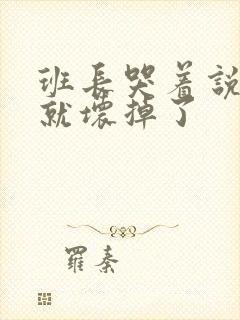 班長哭着說
就壞掉了
羅秦